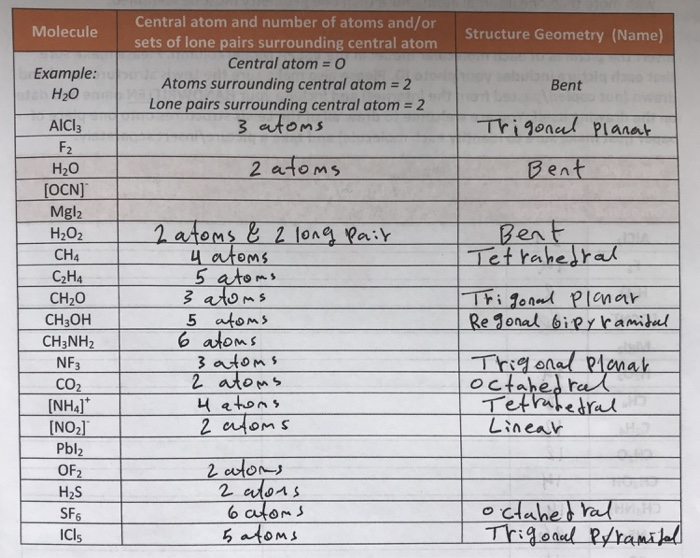 Molecule Central atom and number of atoms and/or sets of lone pairs surrounding central atom Structure Geometry (Name)
Example: H₂O Central atom = O Atoms surrounding central atom = 2 Lone pairs surrounding central atom = 2 Bent
AlCl₃ 3 atoms Trigonal Planar
F₂
H₂O 2 atoms Bent
[OCN]⁻
MgI₂
H₂O₂ 2 atoms & 2 long Pair Bent
CH₄ 4 atoms Tetrahedral
C₂H₄ 5 atoms
CH₂O 3 atoms Trigonal Planar
CH₃OH 5 atoms Regonal bipyramidal
CH₃NH₂ 6 atoms
NF₃ 3 atoms Trigonal Planar
CO₂ 2 atoms octahedral
[NH₄]⁺ 4 atoms Tetrahedral
[NO₂]⁻ 2 atoms Linear
PbI₂
OF₂ 2 atoms
H₂S 2 atoms
SF₆ 6 atoms octahedral
ICl₅ 5 atoms Trigonal Pyramidal